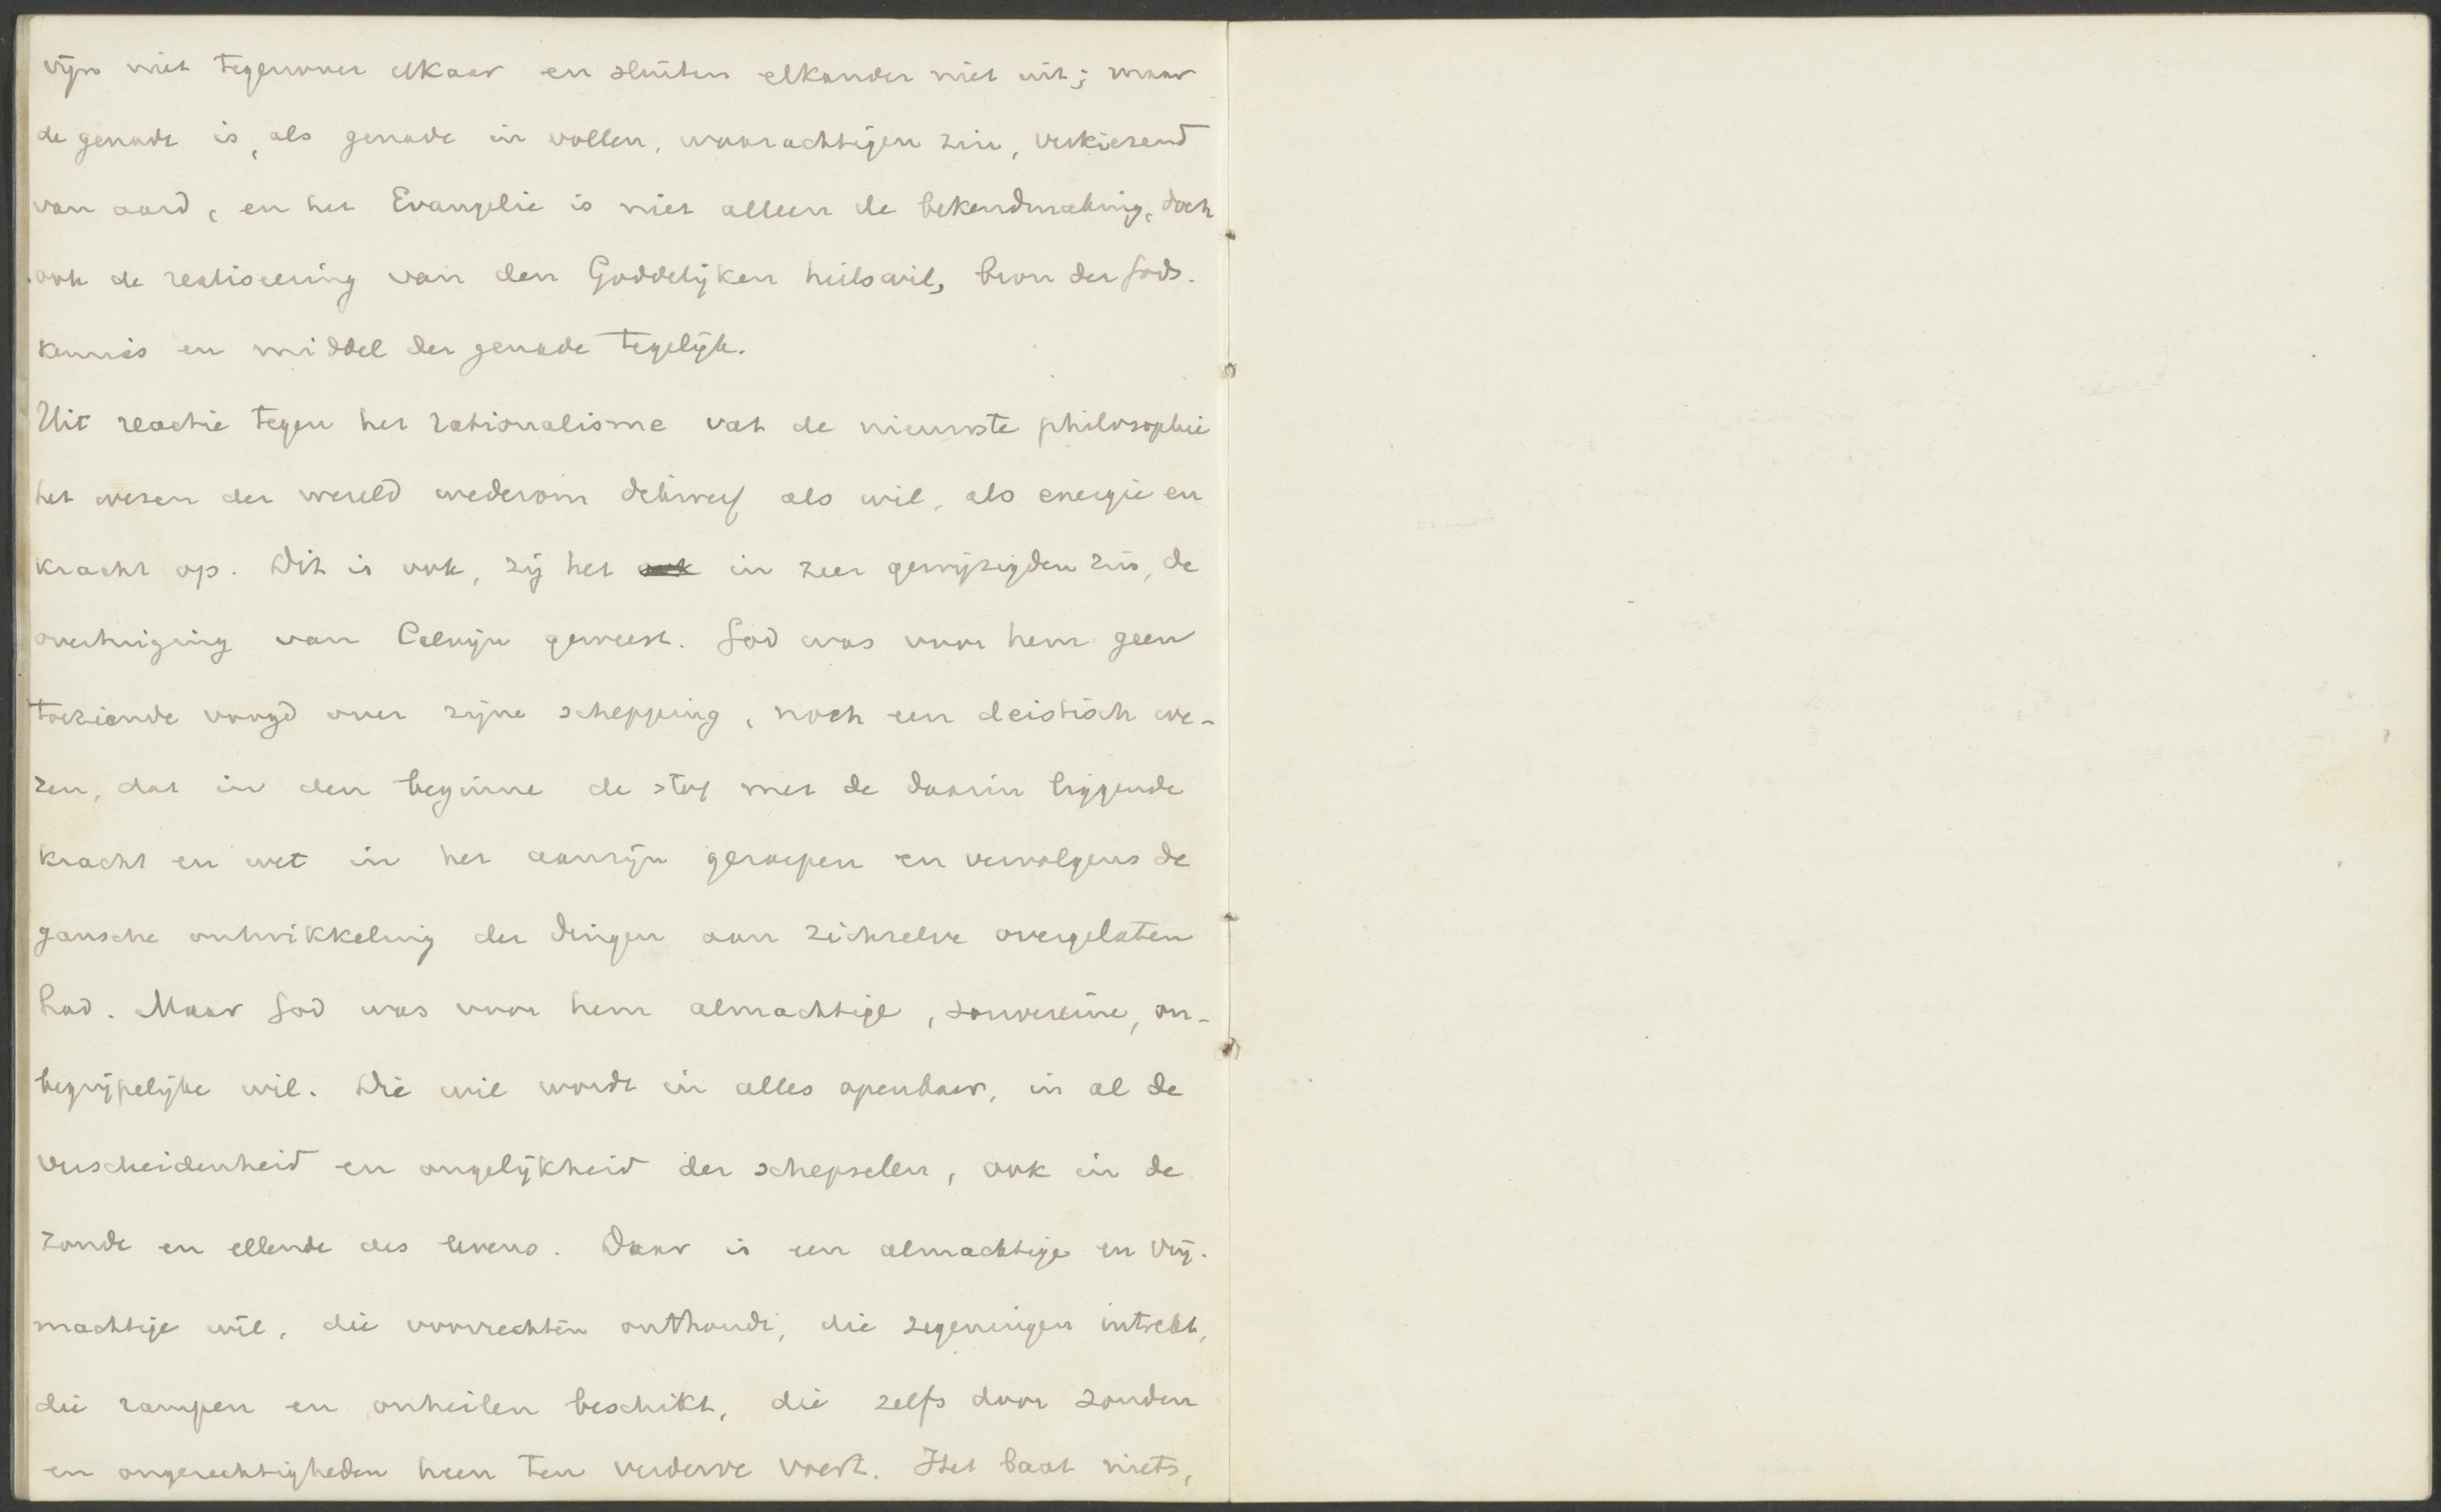 zijn niet tegenover elkaar en sluiten elkander niet uit; maar
de genade is, als genade in vollen, waarachtigen zin, verkiezend
van aard, en het Evangelie is niet alleen de bekendmaking, doch
ook de realiseering van den Goddelijken heilswil, bron der Gods-
kennis en middel der genade tegelijk.
Uit reactie tegen het rationalisme vat de nieuwste philosophie
het wezen der wereld wederom dikwerf als wil, als energie en
kracht op. Dit is ook, zij het ook in zeer gewijzigden zin, de
overtuiging van Calvijn geweest. God was voor hem geen
toeziende voogd over zijne schepping, noch een deistisch we-
zen, dat in den beginne de stof met de daarin liggende
kracht en wet in het aanzijn geroepen en vervolgens de
gansche ontwikkeling der dingen aan zichzelve overgelaten
had. Maar God was voor hem almachtige, souvereine, on-
begrijpelijke wil. Die wil wordt in alles openbaar, in al de
verscheidenheid en ongelijkheid der schepselen, ook in de
zonde en ellende des levens. Daar is een almachtige en vrij-
machtige wil, die voorrechten onthoudt, die zegeningen intrekt,
die rampen en onheilen beschikt, die zelfs door zonden
en ongerechtigheden heen ten verderve voert. Het baat niets,